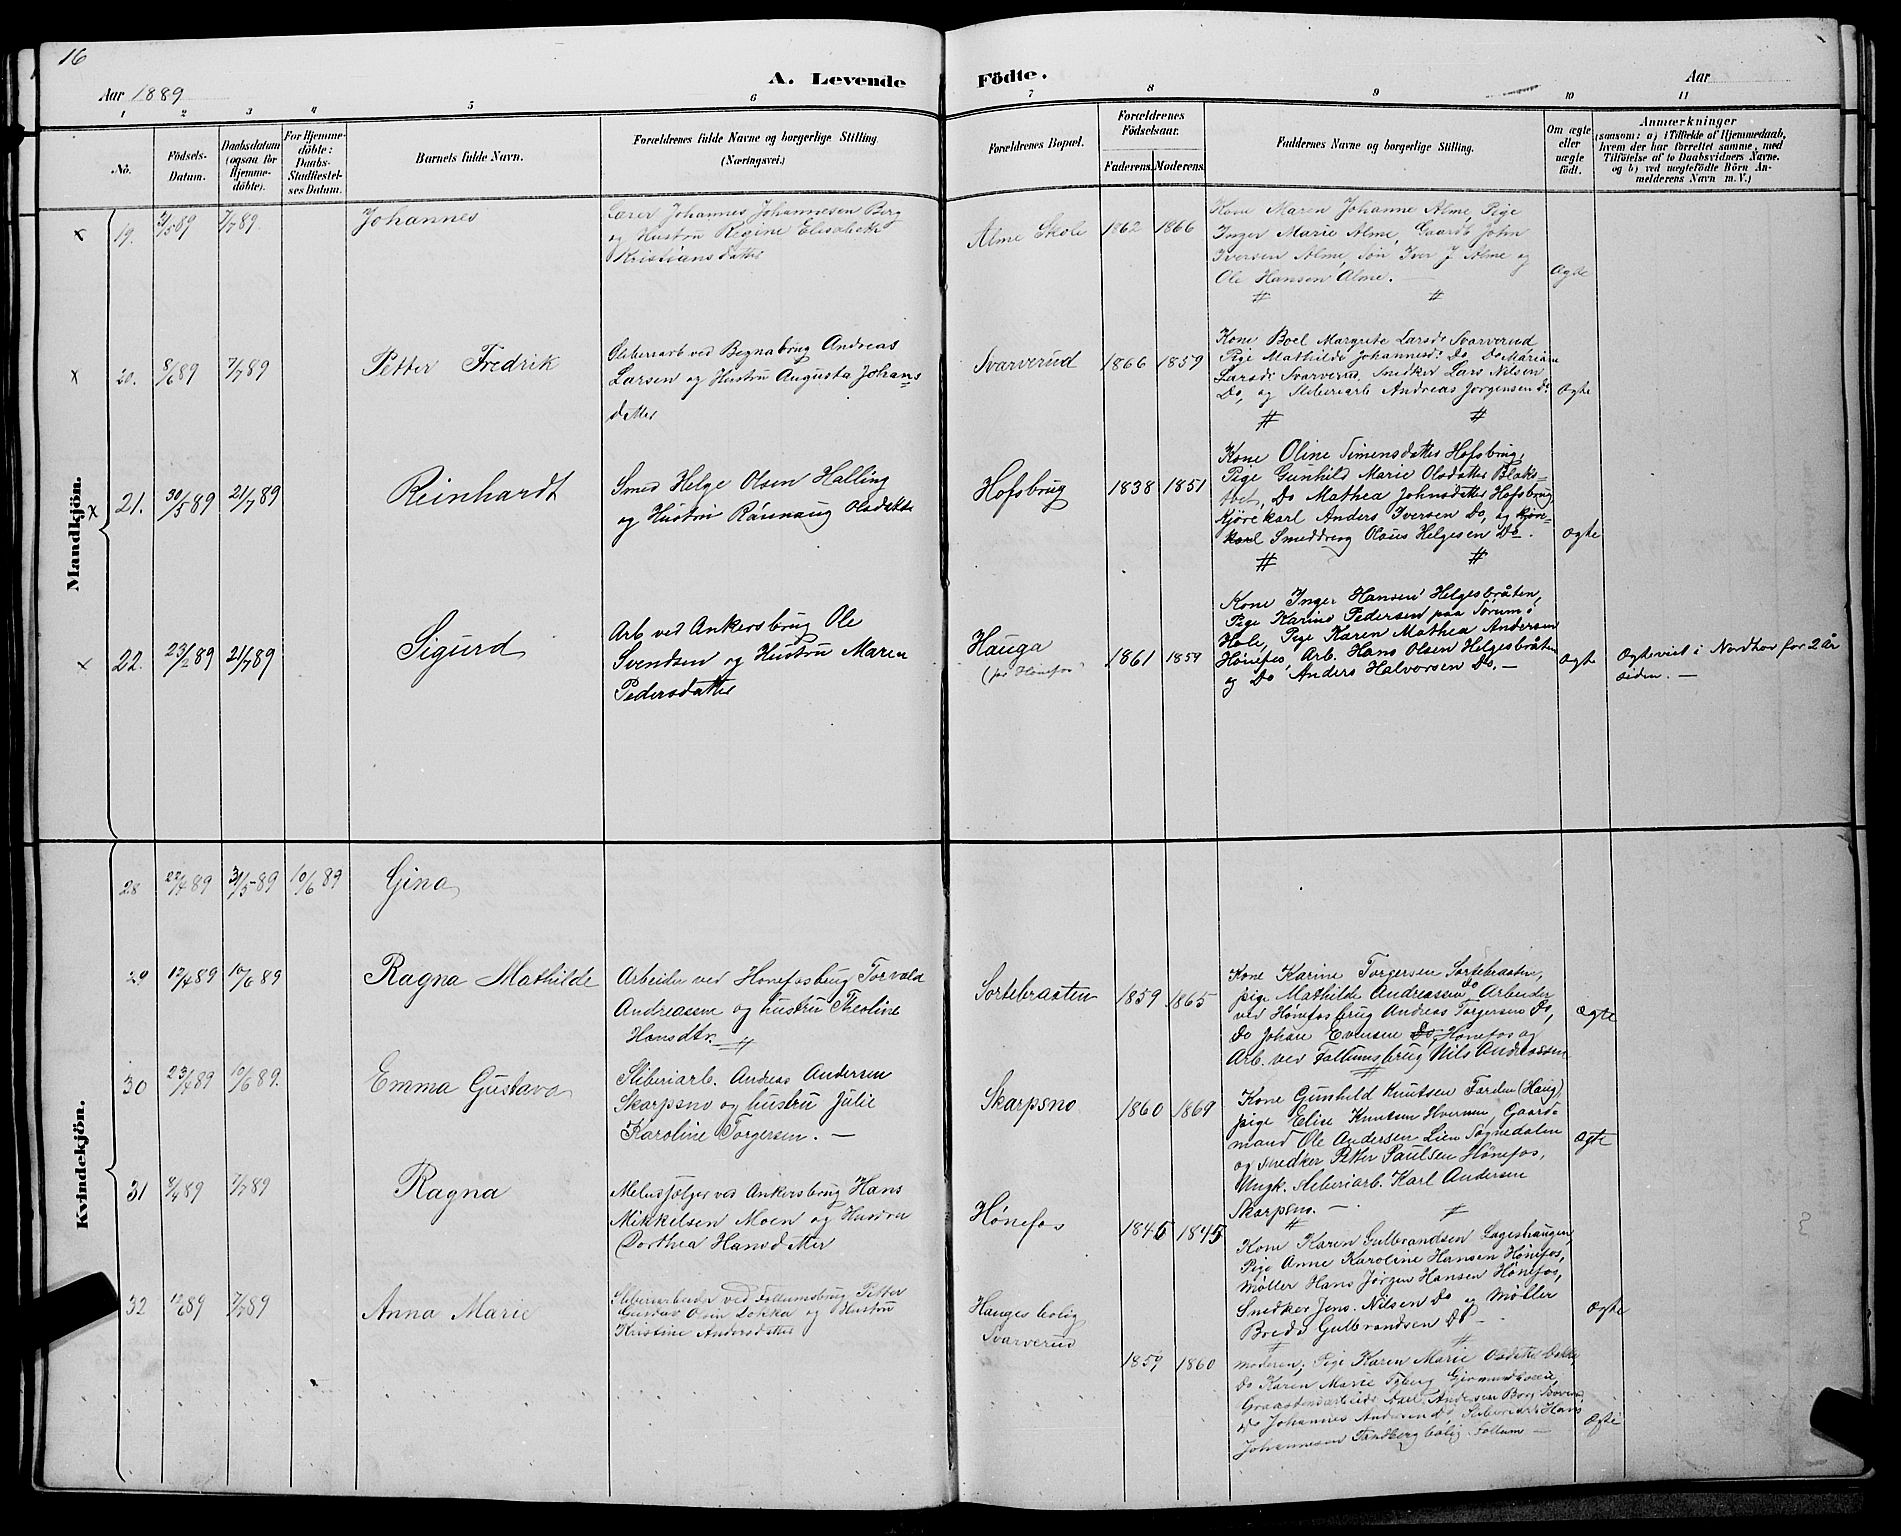 16
A. Levende Födte.
Aar 1889
Aar
1 2 3 4 5 6 7 8 9 10 11
No.
Födsels-
Datum.
Daabsdatum
(ogsaa for
Hjemme-
döbte).
For Hjemme-
döbte:
Daabs-
Stadfæstel-
ses Datum.
Barnets fulde Navn.
Forældrenes fulde Navne og borgerlige Stilling
(Næringsvei.)
Forældrenes Bopæl.
Forældrenes
Födselsaar.
Faderens Moderens
Faddernes Navne og borgerlige Stilling.
Om ægte
eller
uægte
født.
Anmærkninger
(saasom: a) i Tilfælde af Hjemmedaab,
hvem der har forrettet samme, med
Tilföielse af to Daabsvidners Navne.
og b) ved uægtefödte Börn An-
melderens Navn m. V.)
Mandkjön.
x 19. 21/5 89 7/7 89. Johannes
Lærer Johannes Johannesen Berg
og Hustru Regine Elisabeth
Kristiansdatter
Alme Skole 1862 1866
Kone Maren Johanne Alme, Pige
Inger Marie Alme, Gaardb John
Iversen Alme, Søn Iver J Alme og
Ole Hansen Alme. —
Ægte
x 20. 8/6 89 7/7 89 Petter Fredrik
Sliberiarb ved Begnabrug Andreas
Larsen og Hustru Augusta Johans
datter
Svarverud 1866 1859
Kone Boel Margrete Larsd. Svarverud
Pige Mathilde Johannesd. Do, Do Mariane
Larsd. Svarverud, Snedker Lars Nilsen
Do, og Sliberiarb Andreas Jørgensen do.
Ægte
x 21. 30/5 89 21/7 89 Reinhardt
Smed Helge Olsen Halling
og Hustru Rønnaug Olsdatter
Hofsbrug 1838 1851
Kone Oline Simensdatter Hofsbrug,
Pige Gunhild Marie Olsdatter Blak-
Do Mathea Johnsdatter Hofsbrug
Kjørekarl Anders Iversen Do, og kjøre-
karl Smeddreng Olaus Helgesen Do.
Ægte
x 22. 23/2 89 21/7 89 Sigurd
Arb ved Ankersbrug Ole
Svendsen og Hustru Maren
Pedersdatter
Hauga
Hønefos
1861 1859
Kone Inger Hansen Helgesbråten,
Pige Karine Pedersen paa Sørum i
Hole, Pige Karen Mathea Andersen
Hønefos, Arb. Hans Olsen Helgesbråten
og Do Anders Halvorsen Do. —
Ægte
Ægteviet i Nordhov for 2 år
siden. —
Kvindekjön.
28 22/4 89 31/5 89 10/6 89 Gina
29 12/4 89 10/6 89 Ragna Mathilde
Arbeider ved Hønefosbrug Torvald
Andreassen og hustru Theoline
Hansdtr.
Sortebraaten 1859 1865
Kone Karine Torgersen Sortebraaten,
pige Mathilde Andreassen Do Arbeider
ved Hønefosbrug Andreas Torgersen Do,
Do Johan Evensen Do Hønefos og
Arb. ved Follumsbrug Nils Andreassen
Ægte
30 23/4 89 10/6 89. Emma Gustava
Sliberiarb. Andreas Andersen
Skarpsno og hustru Julie
Karoline Torgersen. —
Skarpsno 1860 1869
Kone Gunhild Knutsen Farden (Haug)
pige Elise Knutsen Hvernen, Gaard-
mand Ole Andersen Lien Sognedalen
og snedker Petter Paulsen Hønefos,
Ungk. Sliberiarb. Karl Andersen
Skarpsno. —
Ægte
31 9/4 89 7/7 89 Ragna
Melusfælger ved Ankersbrug Hans
Mikkelsen Moen og Hustru
Dorthea Hansdatter
Hønefos 1845 1845
Kone Karen Gulbrandsen Gageshaugen
Pige Anne Karoline Hansen Hønefos,
Møller Hans Jørgen Hansen Hønefos,
Snedker Jens Nilsen Do og Møller
Brede Gulbrandsen Do
Ægte
32 89 7/7 89 Anna Marie
Sliberiarbeider ved Follumsbrug Petter
Gustav Olsen Løkka og Hustru
Kristine Andersdatter
Hauges bolig
Svarverud
1859 1860
moderen, Pige Karen Marie Olsdatter
Do Karen Marie
Andersen Borg
Do Johannes Andersen Do, Sliberiarb. Hans
Johannesen Tandberg bolig Follum —
Ægte